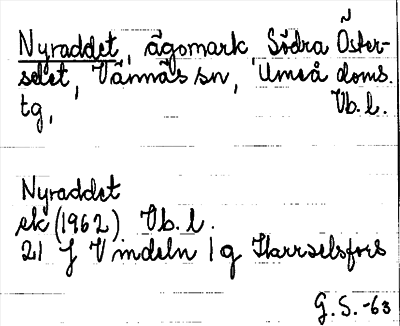 Nyraddet, ägomark Södra Öster-
selet, Vännäs sn, Umeå doms.
tg, Vb.l.
Nyraddet
ek (1962) Vb.l.
21 J Vindeln 1 g Harrselsfors
G.S. -63